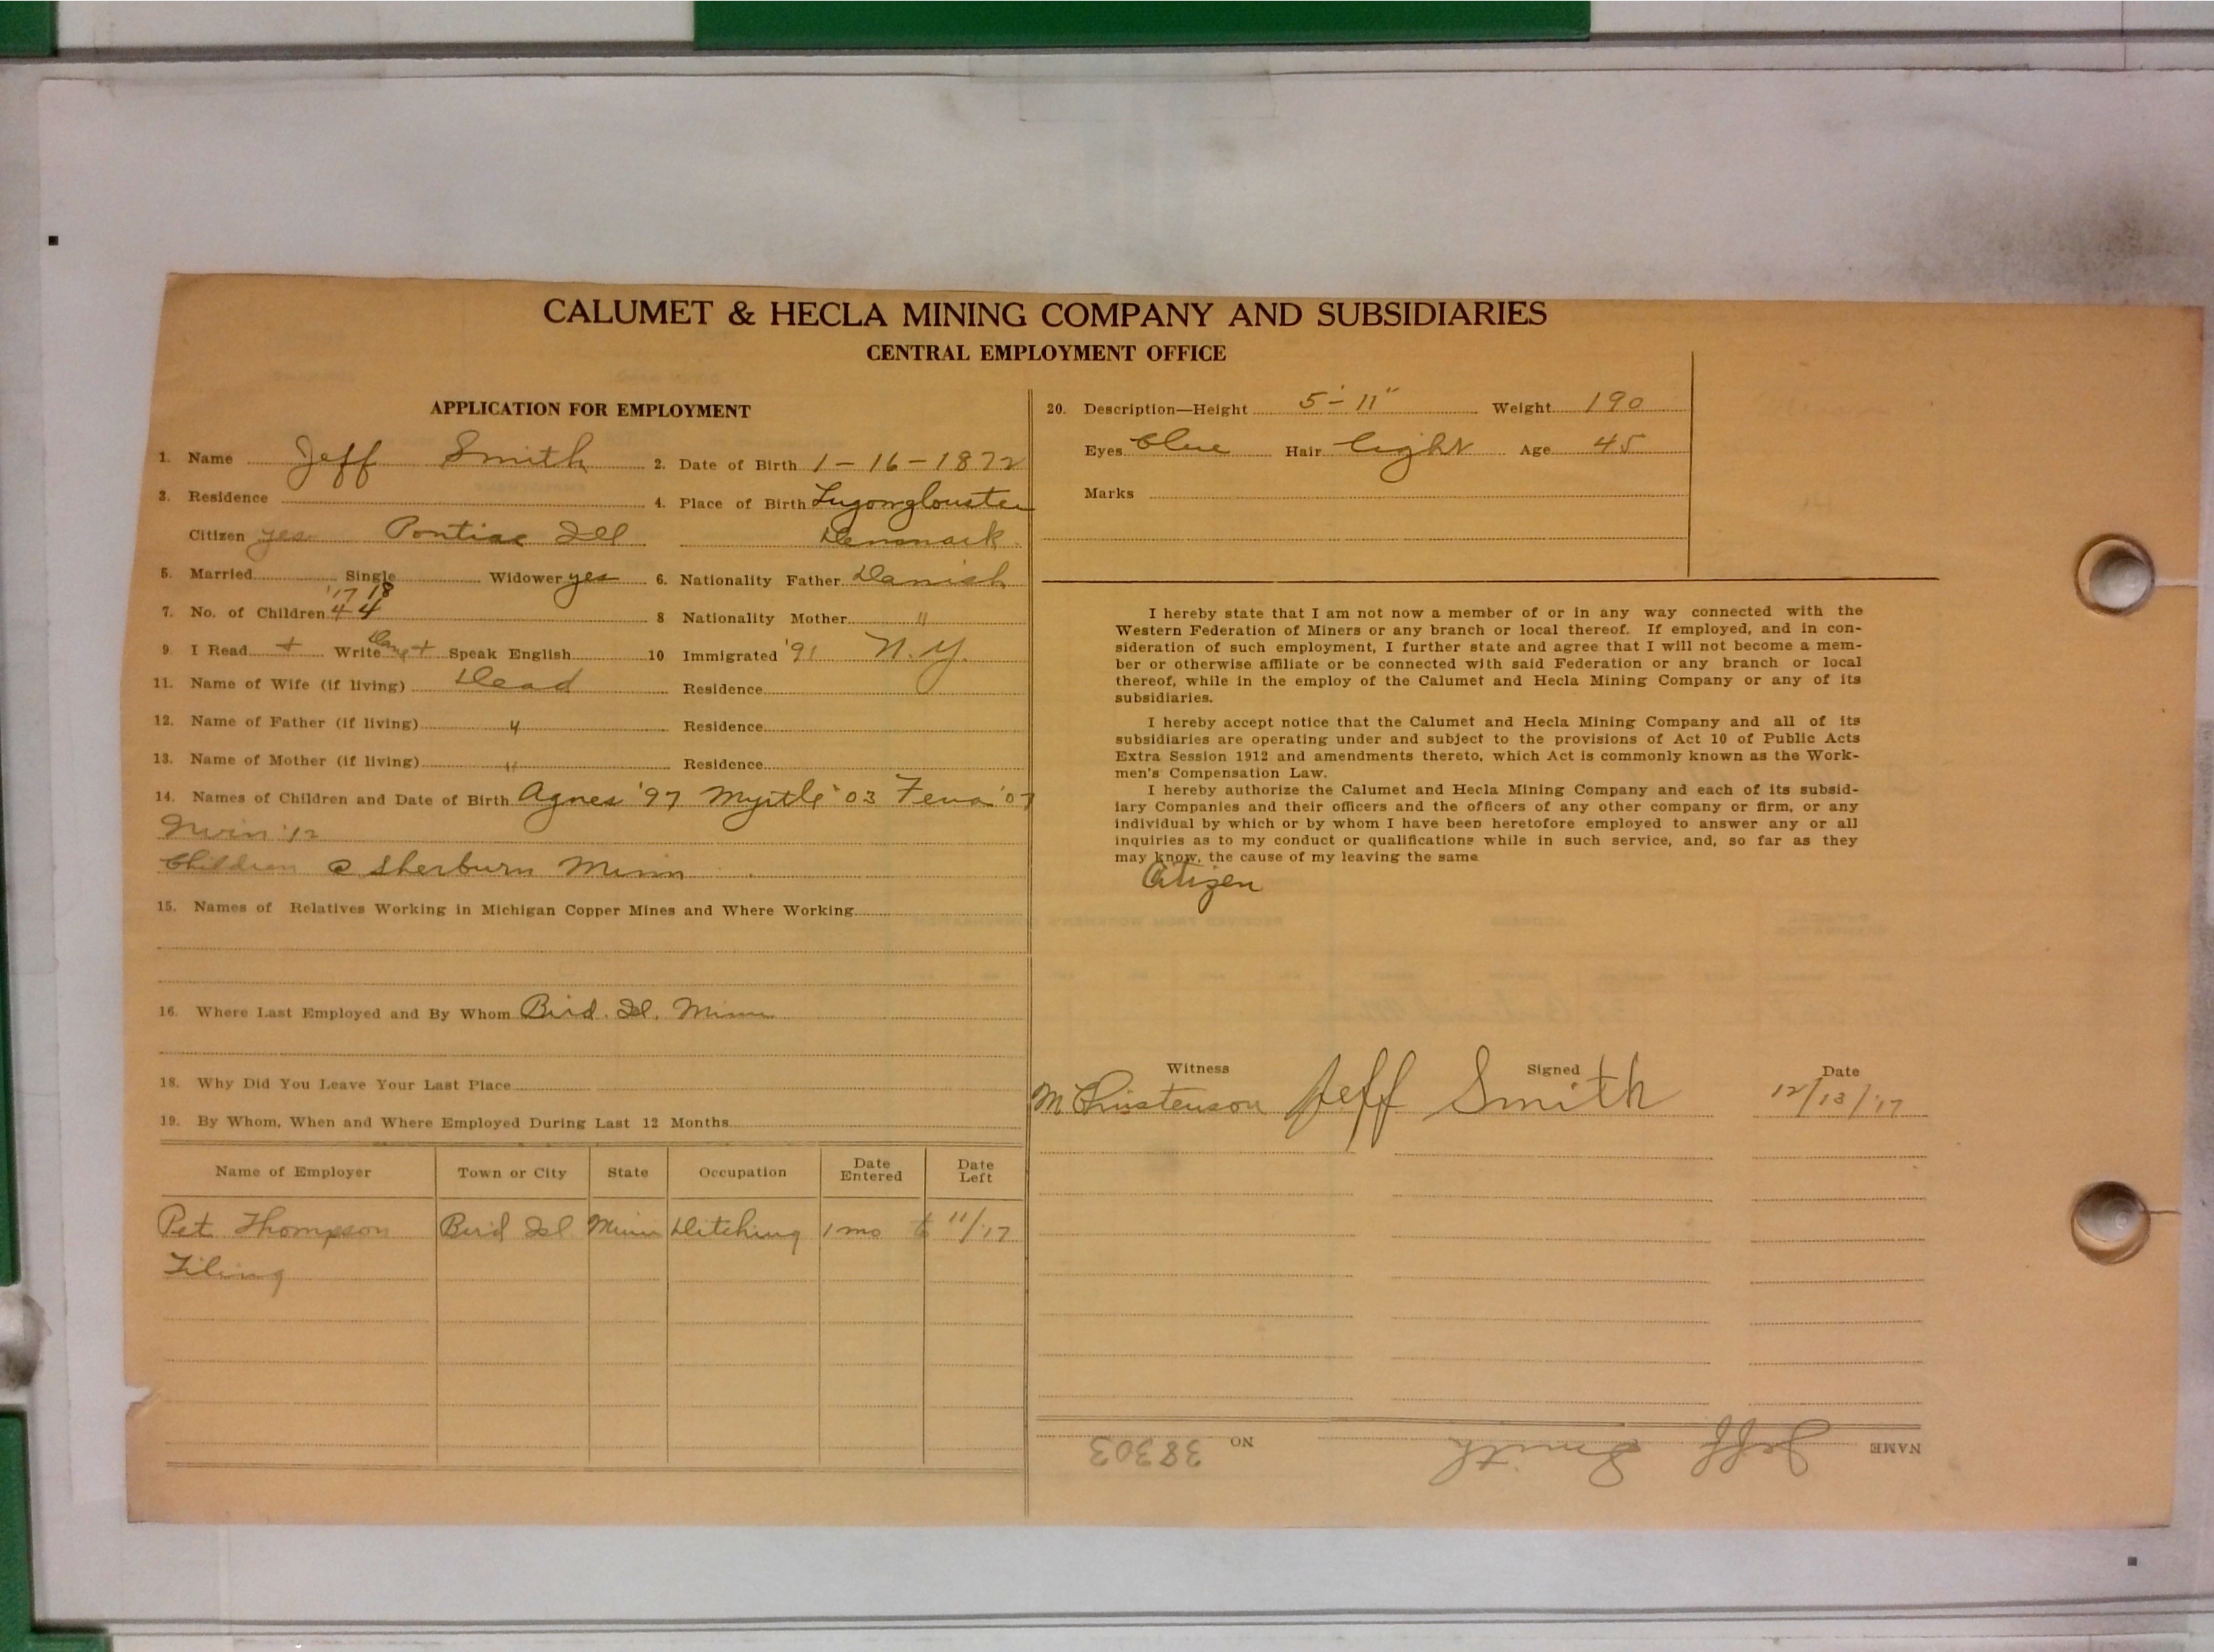 CALUMET & HECLA MINING COMPANY AND SUBSIDIARIES
CENTRAL EMPLOYMENT OFFICE
APPLICATION FOR EMPLOYMENT
1. Name Jeff Smith 2. Date of Birth 1-16-1872
3. Residence 4. Place of Birth
Citizen yes Pontiac Ill Denmark
5. Married Single Widower yes 6. Nationality Father Danish
'17 18
7. No. of Children 4 4 8 Nationality Mother "
9. I Read + Write + Speak English 10 Immigrated '91 N.Y.
11. Name of Wife (if living) Dead Residence
12. Name of Father (if living) " Residence
13. Name of Mother (if living) " Residence
14. Names of Children and Date of Birth Agnes '97 Myrtle '03 '07
'12
Children @ Sherburn Minn
15. Names of Relatives Working in Michigan Copper Mines and Where Working
16. Where Last Employed and By Whom Bird. Isl. Minn
18. Why Did You Leave Your Last Place
19. By Whom, When and Where Employed During Last 12 Months
Name of Employer Town or City State Occupation Date Entered Date Left
Pet Thompson Bird Isl Minn Ditching 1 mo to 11/'17
Tiling
20. Description—Height 5'-11" Weight 190
Eyes blue Hair light Age 45
Marks
I hereby state that I am not now a member of or in any way connected with the
Western Federation of Miners or any branch or local thereof. If employed, and in con-
sideration of such employment, I further state and agree that I will not become a mem-
ber or otherwise affiliate or be connected with said Federation or any branch or local
thereof, while in the employ of the Calumet and Hecla Mining Company or any of its
subsidiaries.
I hereby accept notice that the Calumet and Hecla Mining Company and all of its
subsidiaries are operating under and subject to the provisions of Act 10 of Public Acts
Extra Session 1912 and amendments thereto, which Act is commonly known as the Work-
men's Compensation Law.
I hereby authorize the Calumet and Hecla Mining Company and each of its subsid-
iary Companies and their officers and the officers of any other company or firm, or any
individual by which or by whom I have been heretofore employed to answer any or all
inquiries as to my conduct or qualifications while in such service, and, so far as they
may know, the cause of my leaving the same
Citizen
Witness Signed Date
M Christenson Jeff Smith 12/13/'17
NAME Jeff Smith NO 38303